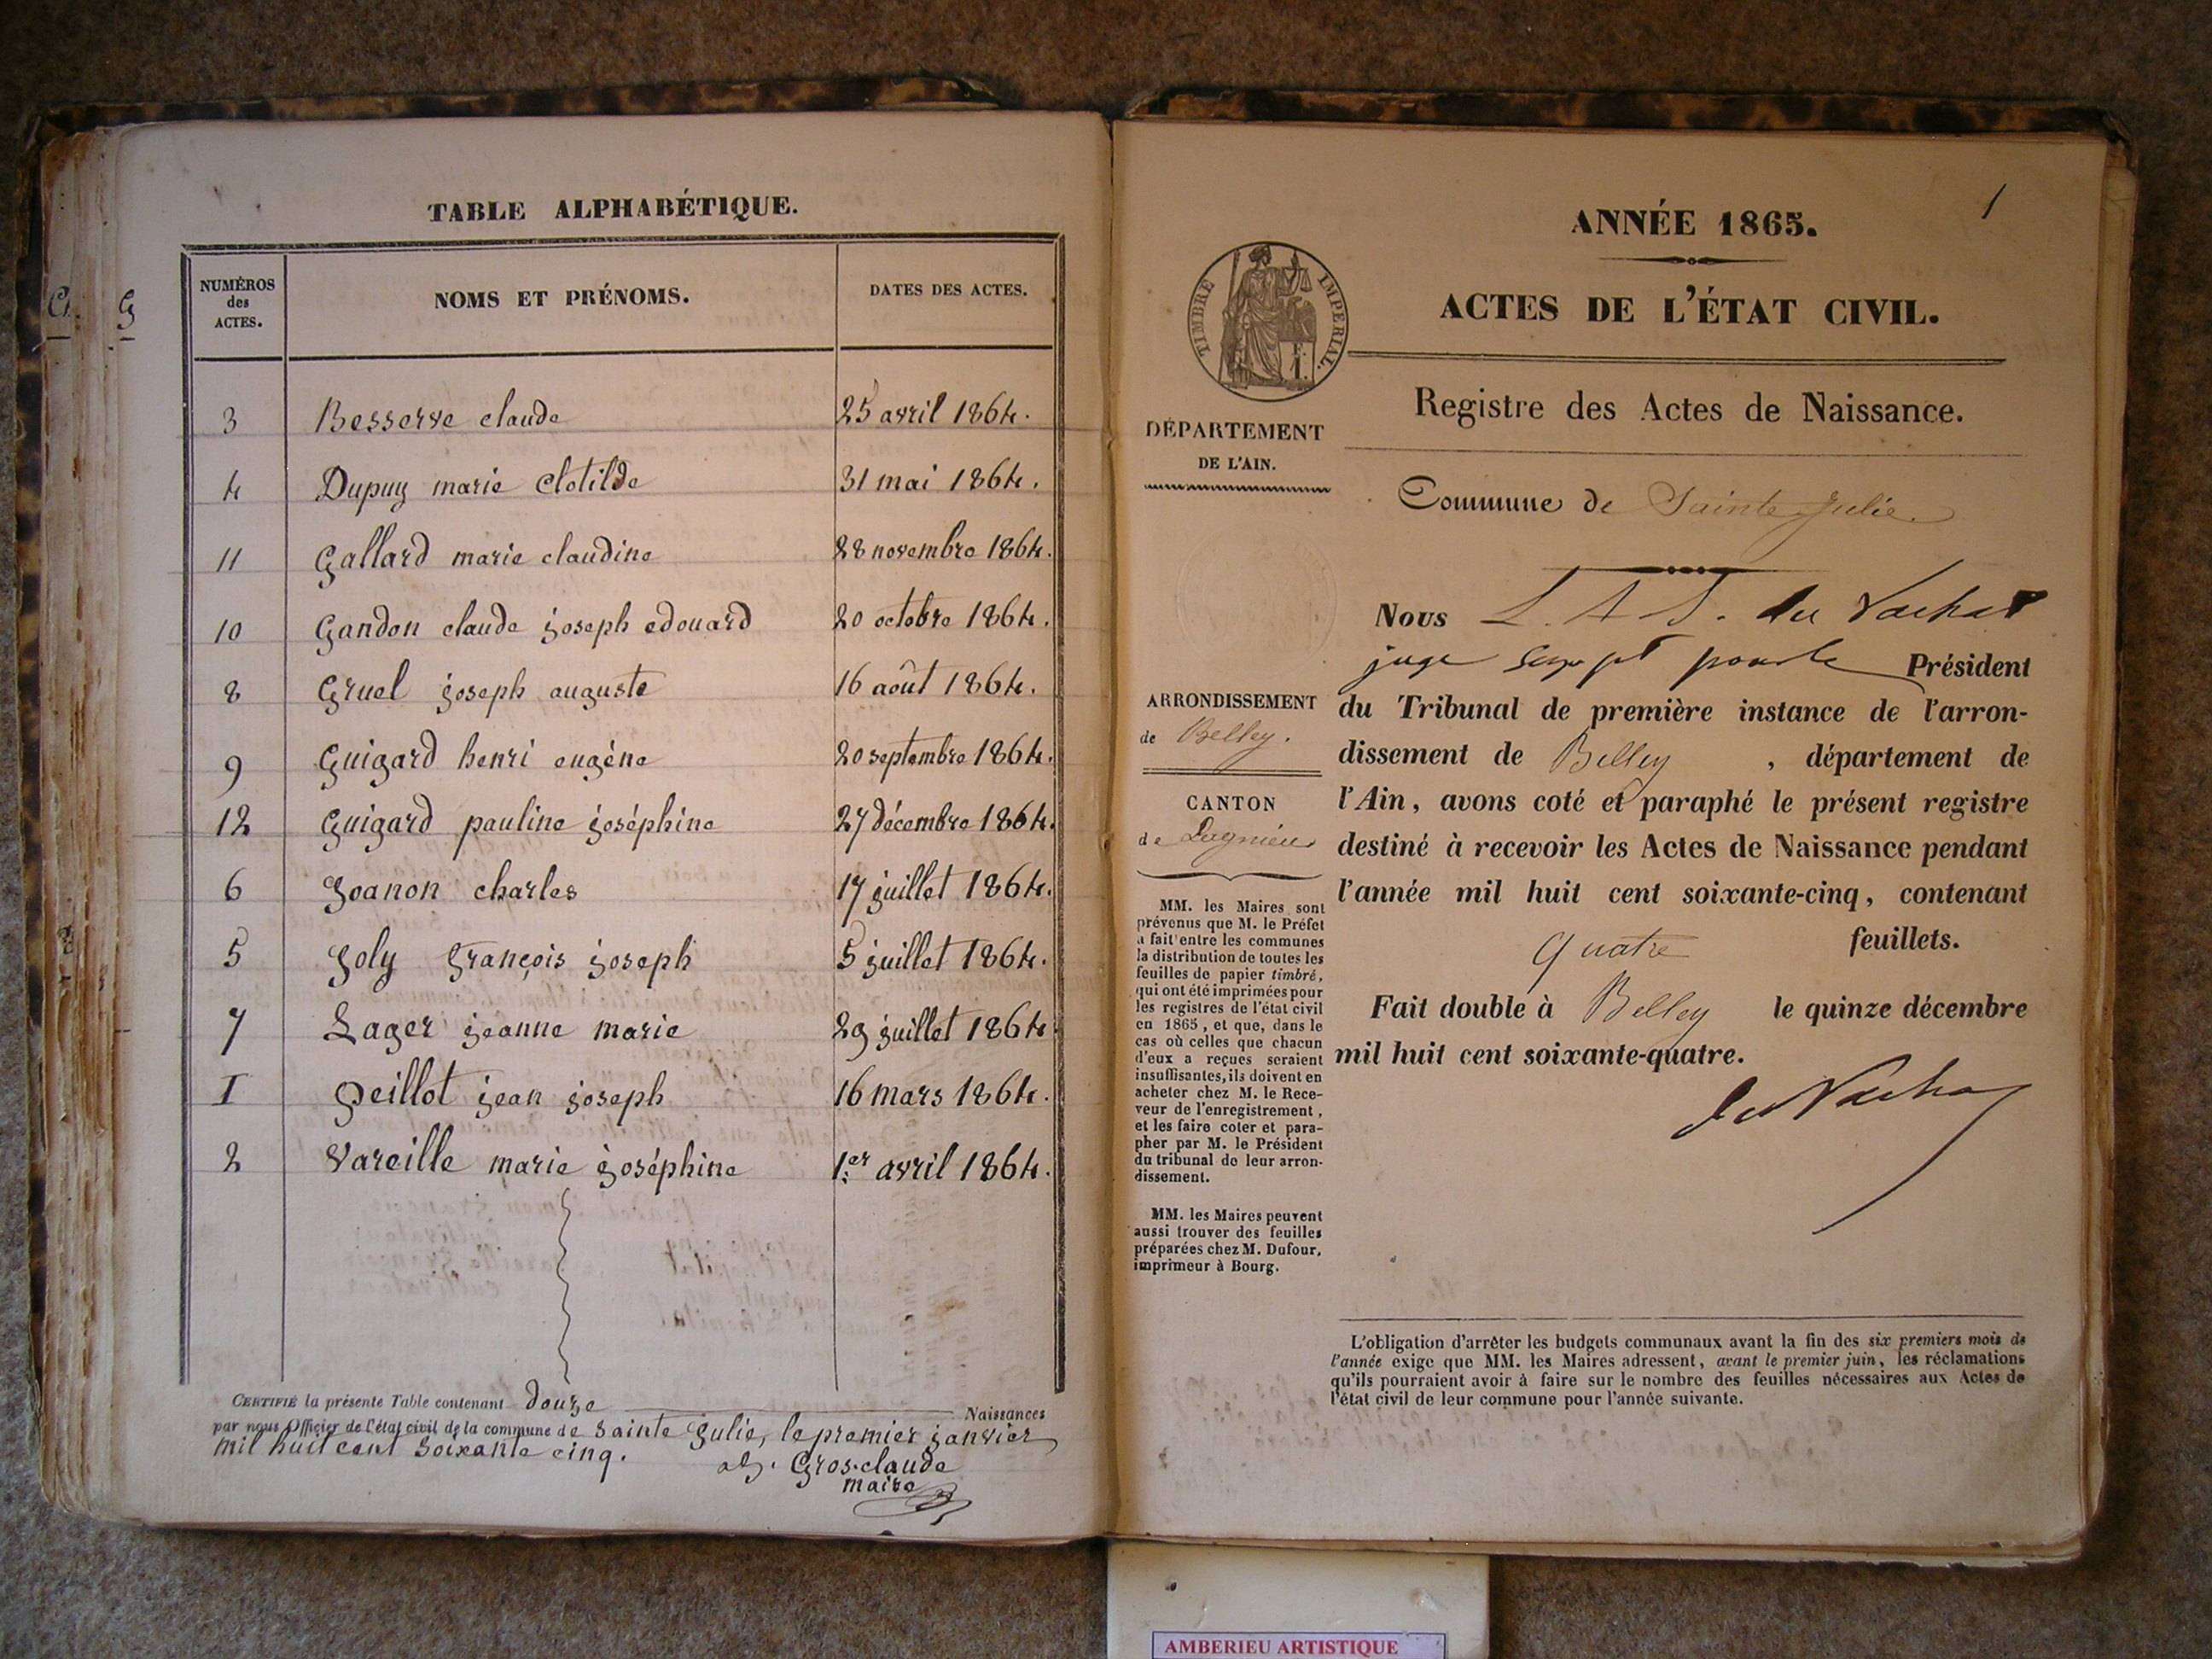 Ch. G
TABLE ALPHABÉTIQUE.
NUMÉROS des ACTES. NOMS ET PRÉNOMS. DATES DES ACTES.
3 Besserve claude 25 avril 1864.
4 Dupuy marie Clotilde 31 mai 1864.
11 Gallard marie claudine 28 novembre 1864.
10 Gandon claude joseph edouard 20 octobre 1864.
8 Gruel joseph auguste 16 août 1864.
9 Guigard henri eugène 20 septembre 1864.
12 Guigard pauline joséphine 27 décembre 1864.
6 Joanon charles 17 juillet 1864.
5 Joly François joseph 5 juillet 1864.
7 Lager jeanne marie 29 juillet 1864
I Peillot jean joseph 16 mars 1864.
2 Vareille marie joséphine 1.er avril 1864.
CERTIFIÉ la présente Table contenant douze Naissances
par nous Officier de l'état civil de la commune de Sainte Julie, le premier janvier
mil huit cent soixante cinq.
Gros.claude
maire
1
ANNÉE 1865.
ACTES DE L'ÉTAT CIVIL.
TIMBRE IMPERIAL.
Registre des Actes de Naissance.
DÉPARTEMENT
DE L'AIN.
Commune de Sainte Julie.
Nous L. A. J. du Vachat
juge suppt pour le Président
du Tribunal de première instance de l'arron-
dissement de Belley, département de
l'Ain, avons coté et paraphé le présent registre
destiné à recevoir les Actes de Naissance pendant
l'année mil huit cent soixante-cinq, contenant
quatre feuillets.
Fait double à Belley le quinze décembre
mil huit cent soixante-quatre.
du Vachat
ARRONDISSEMENT
de Belley.
CANTON
de Lagnieu
MM. les Maires sont
prévenus que M. le Préfet
a fait entre les communes
la distribution de toutes les
feuilles de papier timbré,
qui ont été imprimées pour
les registres de l'état civil
en 1865, et que, dans le
cas où celles que chacun
d'eux a reçues seraient
insuffisantes, ils doivent en
acheter chez M. le Rece-
veur de l'enregistrement,
et les faire coter et para-
pher par M. le Président
du tribunal de leur arron-
dissement.
MM. les Maires peuvent
aussi trouver des feuilles
préparées chez M. Dufour,
imprimeur à Bourg.
L'obligation d'arrêter les budgets communaux avant la fin des six premiers mois de
l'année exige que MM. les Maires adressent, avant le premier juin, les réclamations
qu'ils pourraient avoir à faire sur le nombre des feuilles nécessaires aux Actes de
l'état civil de leur commune pour l'année suivante.
AMBERIEU ARTISTIQUE